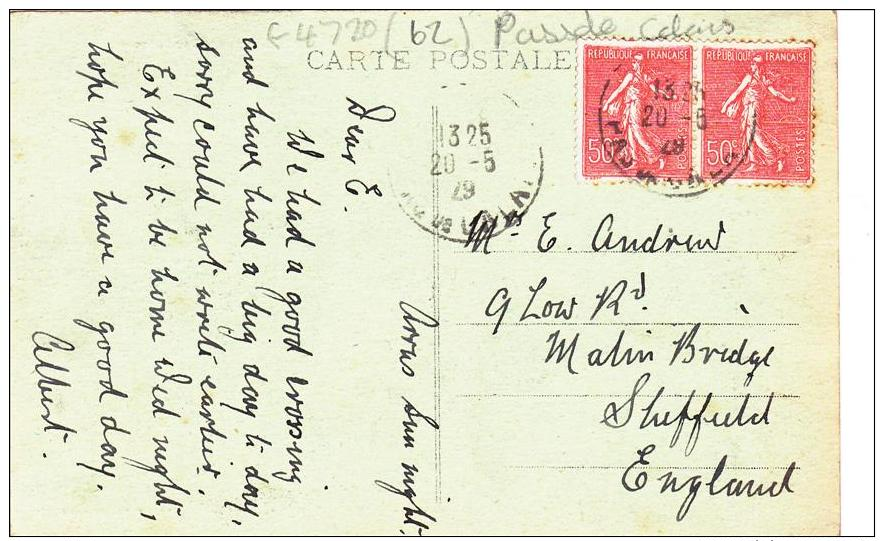 F 4720 (62) Pas de Calais
CARTE POSTALE
REPUBLIQUE FRANÇAISE
50c
POSTES
REPUBLIQUE FRANÇAISE
50c
POSTES
13 25
20 -5
29
13 25
20 -5
29
Arras Sun night,
Dear E.
We had a good crossing
and have had a big day to day,
sorry could not write earlier.
Expect to be home Wed night,
hope you have a good day.
Albert.
Mrs E. Andrew
9 Low Rd.
Malin Bridge
Sheffield
England